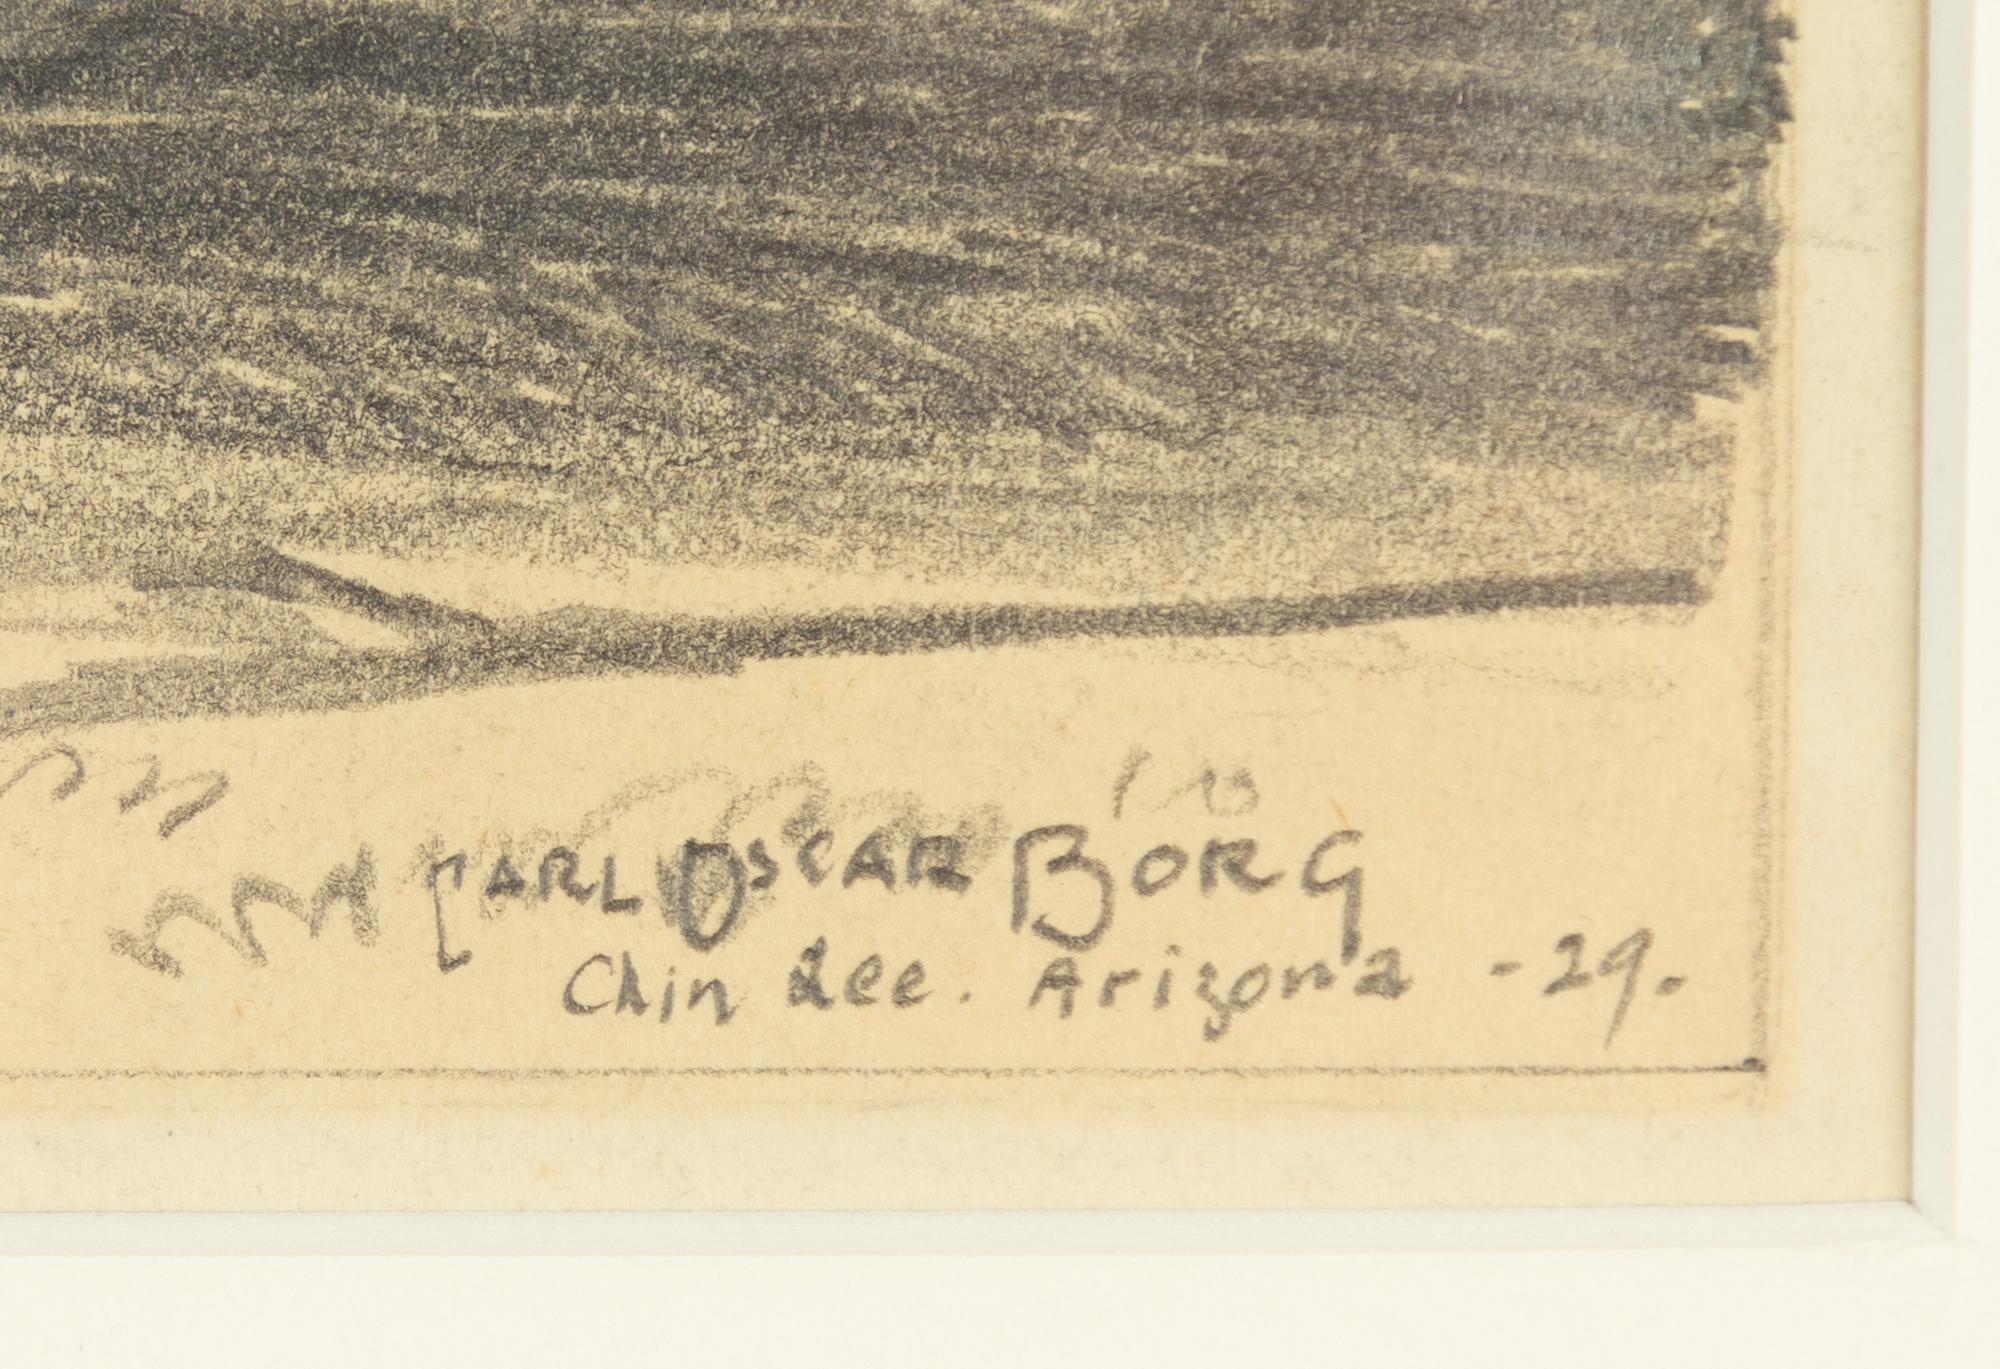 CARL OSCAR BORG
Chin Lee. Arizona -29.